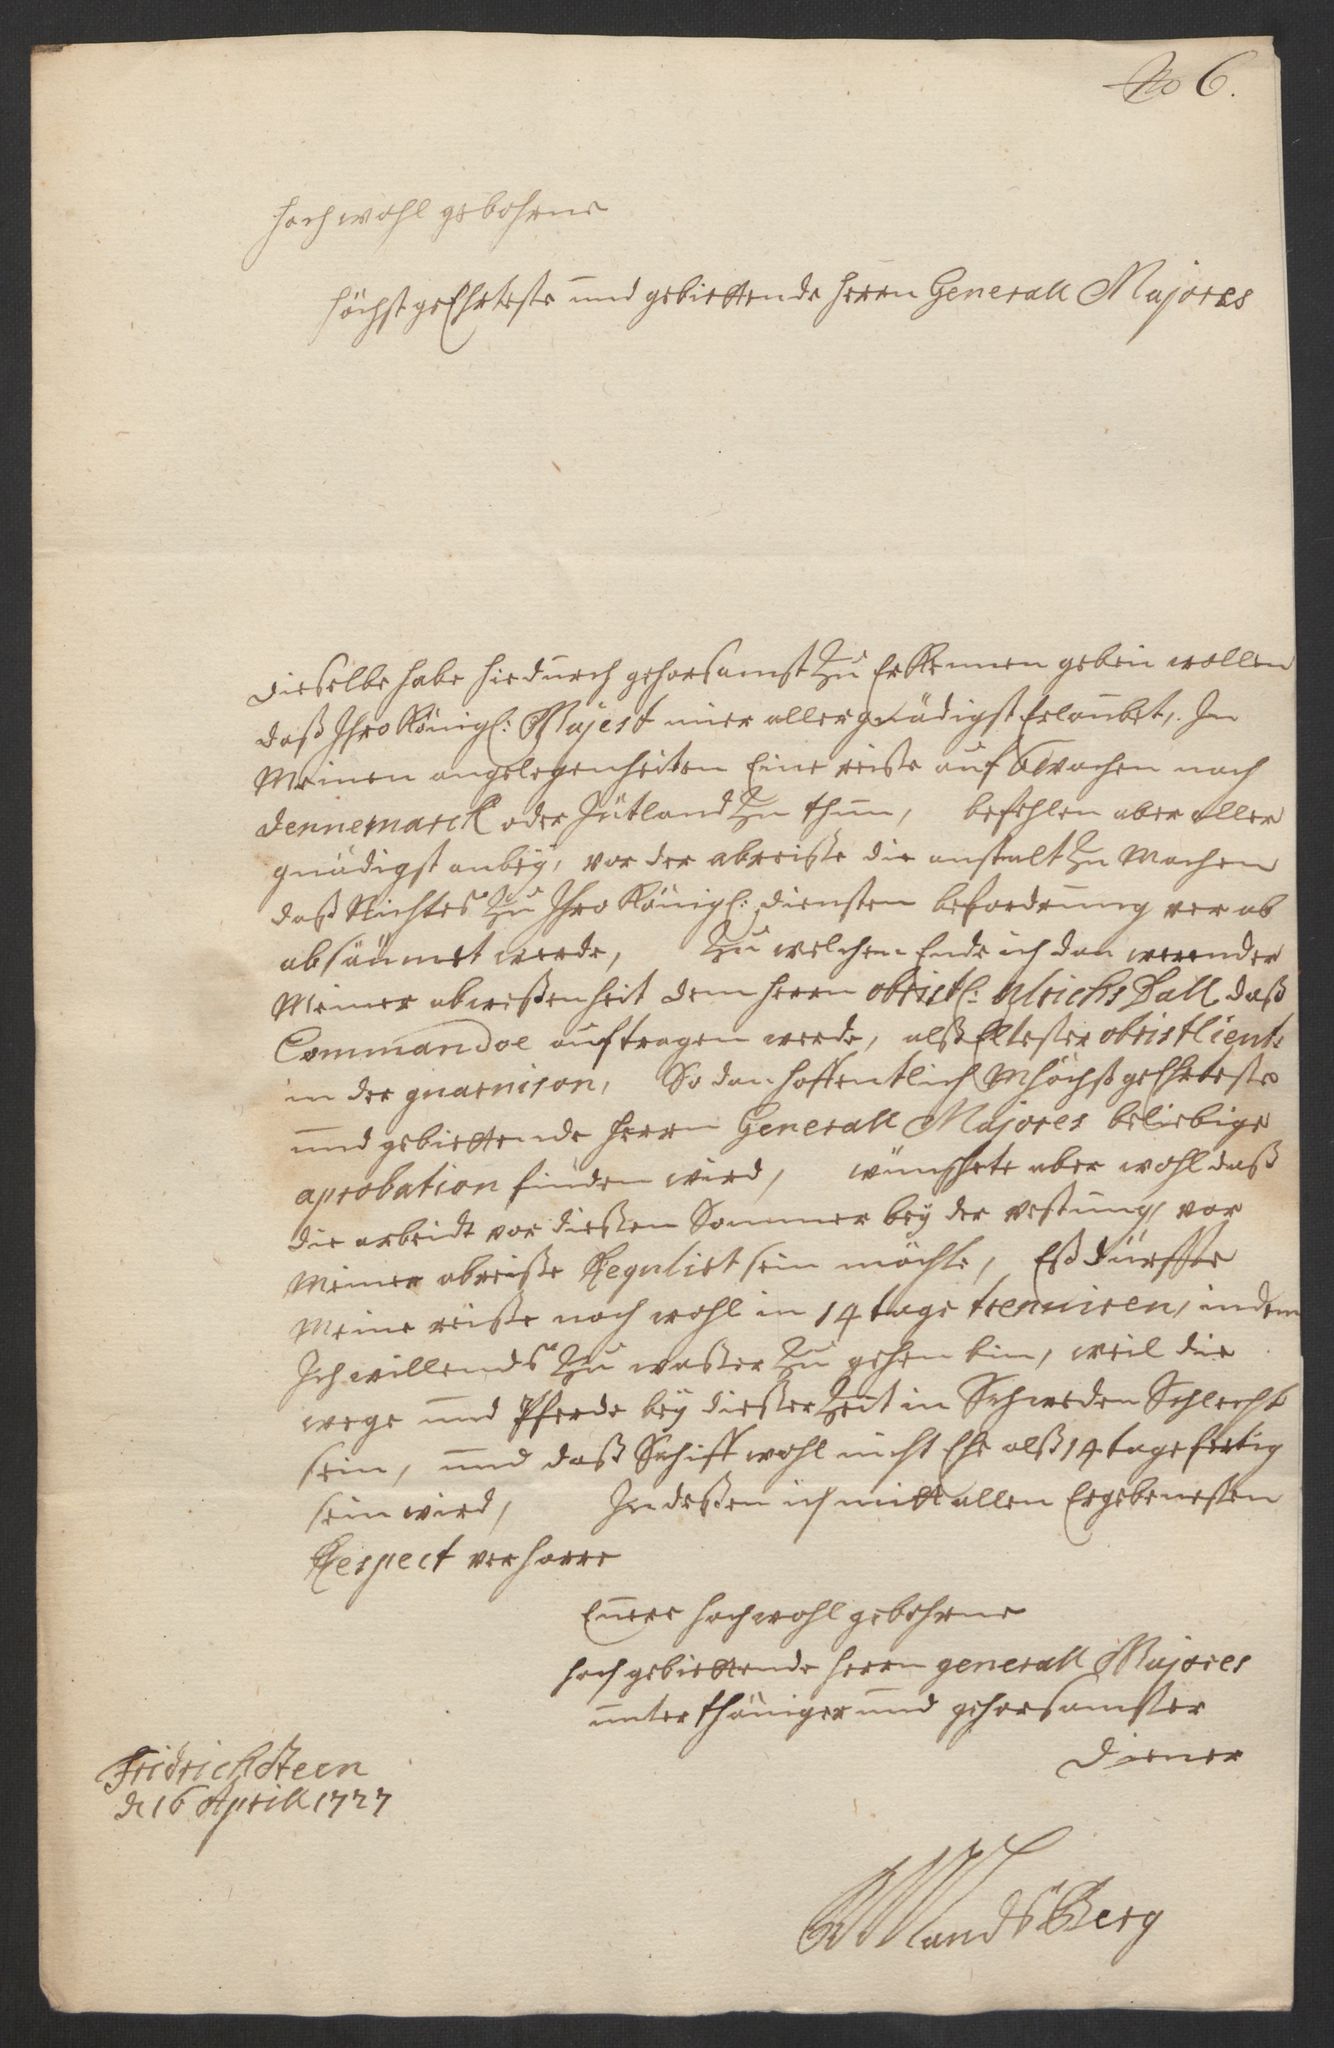 No 6.
Hochwohl gebohrne
höchst geEhrteste und gebiettende Herrn Generall Majores
Dieselbe habe hiedurch gehorsambst zu Erkennen geben wollen
daß Ihro Königl: Majest mier allergnädigst Erlaubet, In
Meinen angelegenheiten Eine reisse auf 6 wochen nach
Dennemarck oder Jütland zu thun, befehlen aber aller
gnädigst anbey, vor der abreisse die anstalt zu Machen
daß Nichtes zu Ihro Königl: diensten befordrung ver ab
absäumet werde, Zu welchen Ende ich dan werender
Meiner abweßenheit dem Herrn obristl: Ulrichs Dall daß
Commandoe auftragen werde, alß Eltester obristlieut:
in der guarnison, So dan hoffentlich Mhöchst geEhrteste
und gebiettende Herrn Generall Majores beliebige
aprobation finden wird, wünschete aber wohl daß
die arbeidt vor dießen Sommer bey der vestung, vor
Meiner abreisse Regulirt sein möchte, Eß dürffte
Meine reisse noch wohl in 14 tage trennieren, indem
Ich willends zu waßer zu gehen bin, weil die
wege und Pferde bey dießer Zeit in Schweden Schlecht
sein, und daß Schiff wohl nicht Ehe alß 14 tage fertig
sein wird, In deßen ich mitt allen Ergebenesten
Respect verharre
Euere Hochwohl gebohrne
Hoch gebiettende Herrn generall Majores
unterthäniger und gehorsamster
Diener
Fridrichsteen
d 16 Aprill 1727
Landsberg